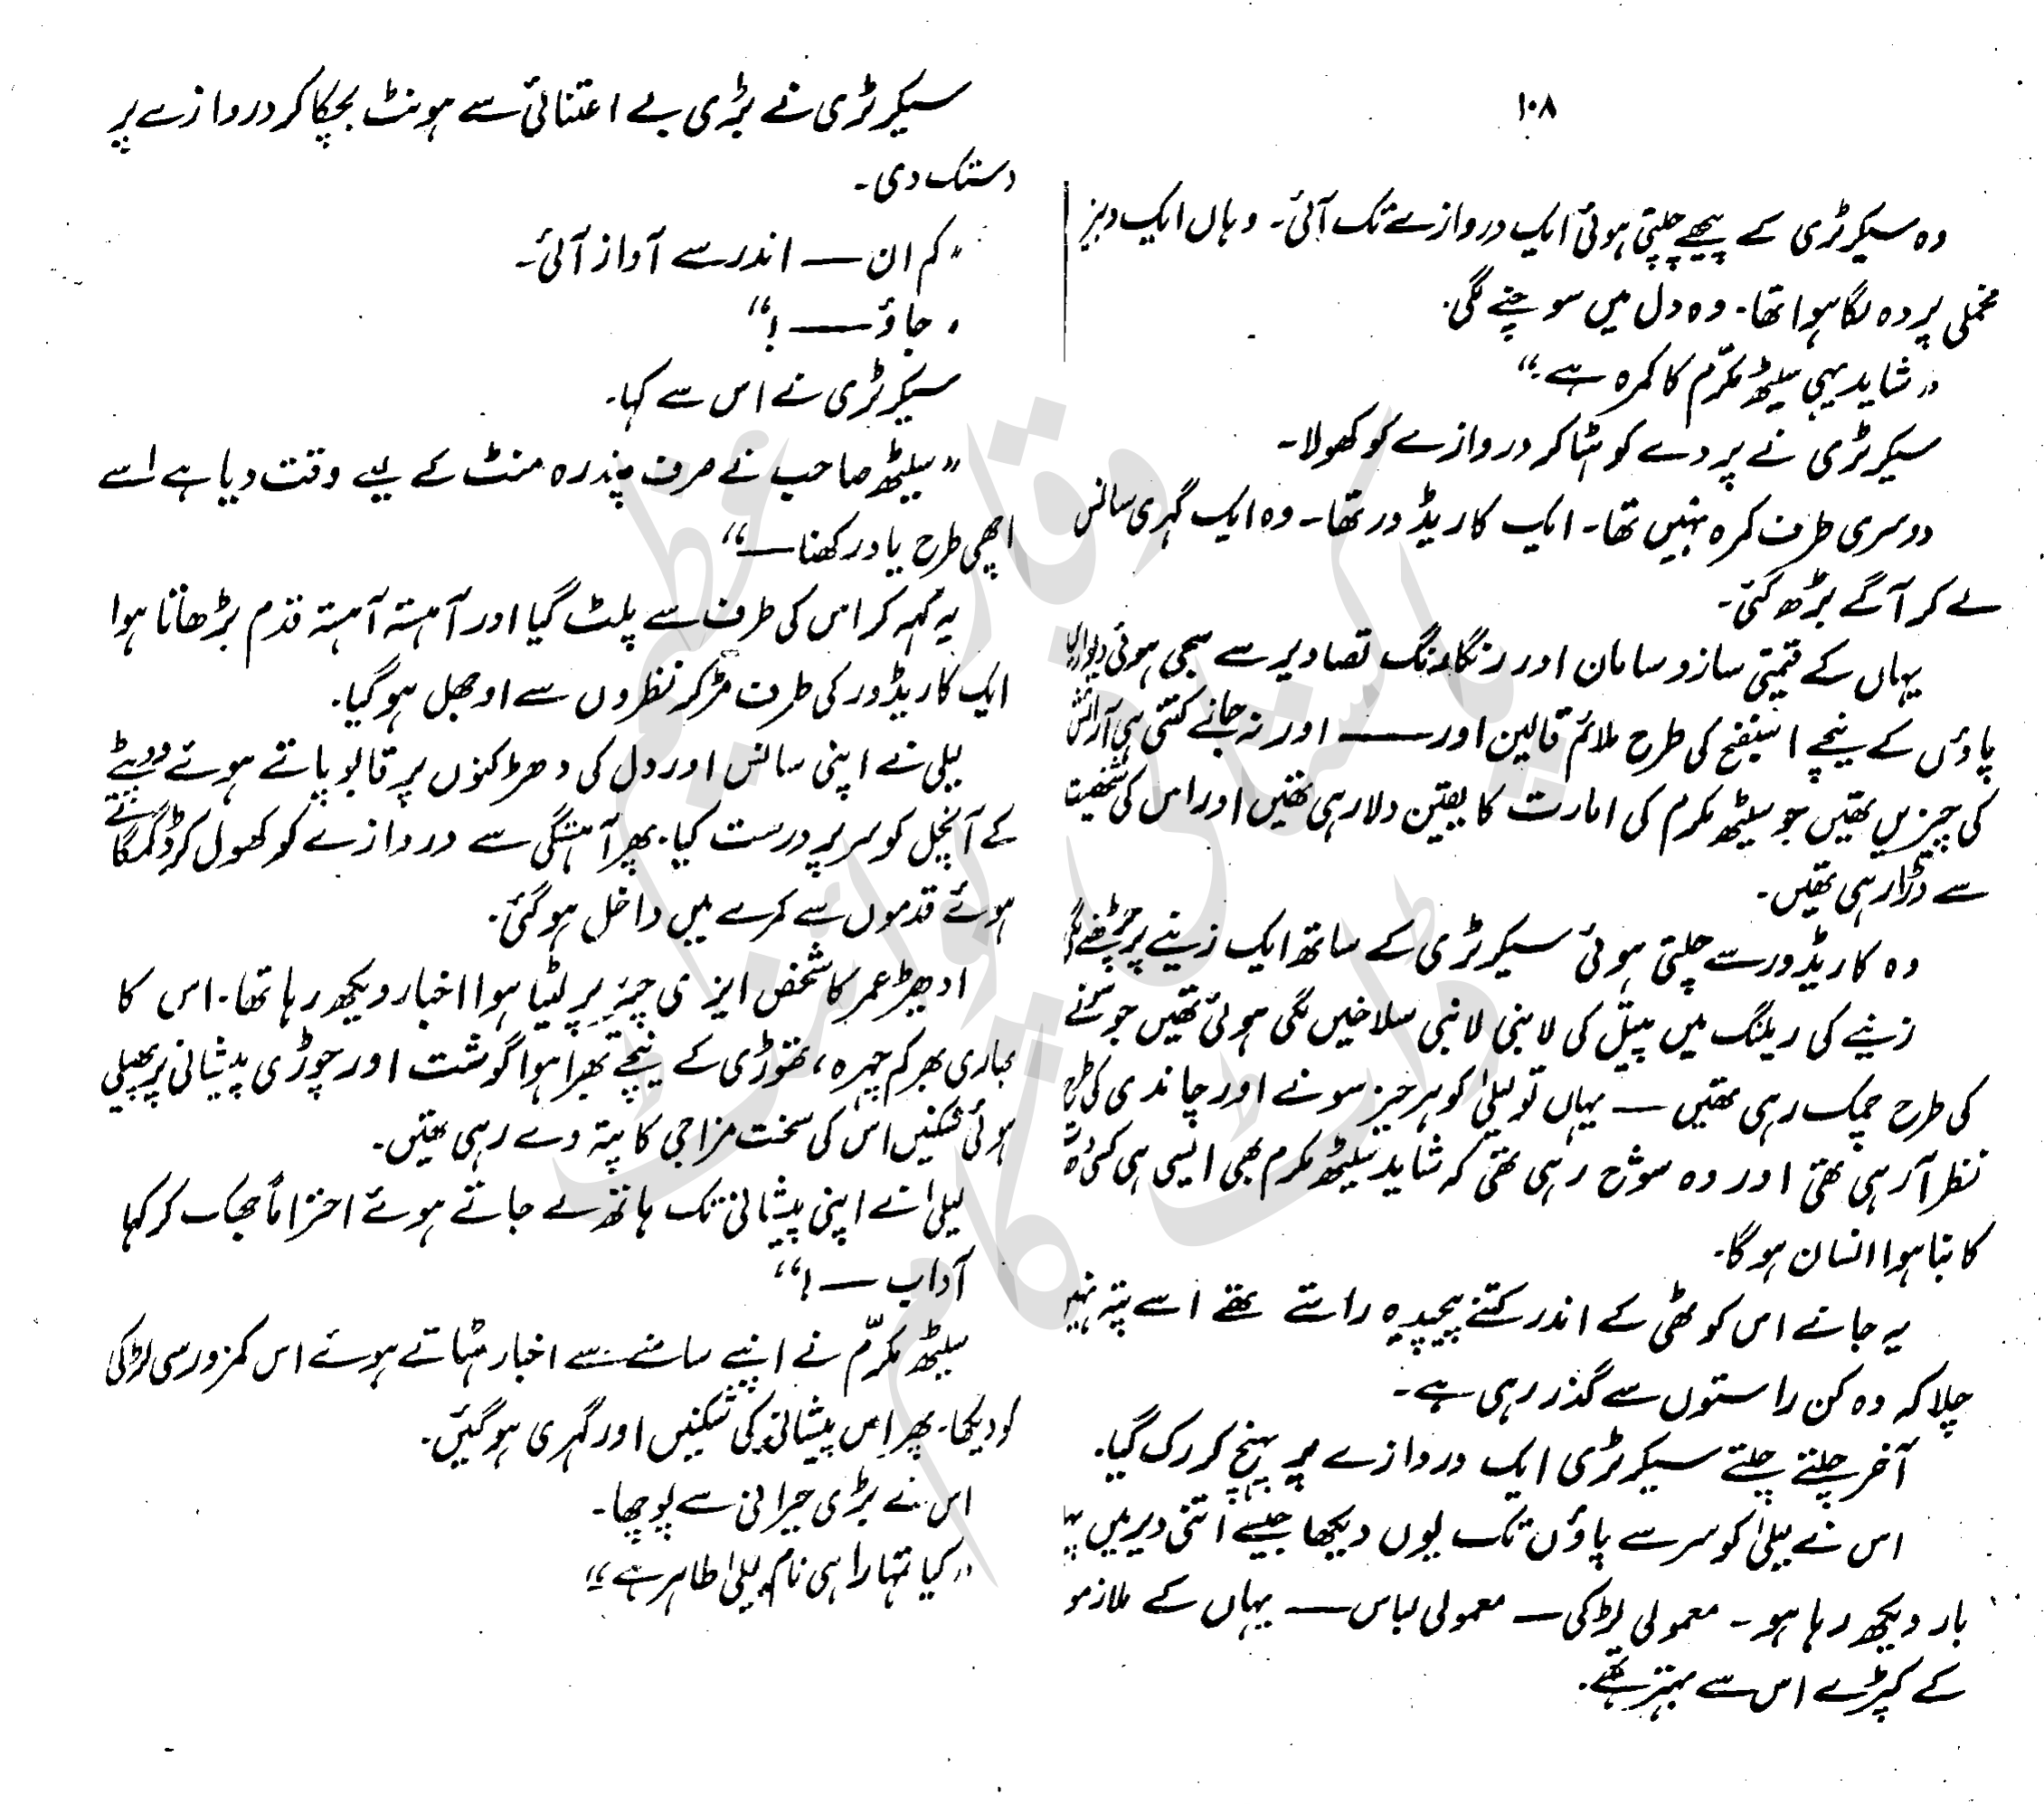 ۱۰۸
وہ سیکرٹری کے پیچھے چلتی ہوئی ایک دروازے تک آئی۔ وہاں ایک دبیز
مخملی پردہ لگا ہوا تھا۔ وہ دل میں سوچنے لگی۔
”شاید یہی سیٹھ مکرّم کا کمرہ ہے۔“
سیکرٹری نے پردے کو ہٹا کر دروازے کو کھولا۔
دوسری طرف کمرہ نہیں تھا۔ ایک کاریڈور تھا۔ وہ ایک گہری سانس
لے کر آگے بڑھ گئی۔
یہاں کے قیمتی سازو سامان اور رنگا رنگ تصاویر سے سجی ہوئی
پاؤں کے نیچے اسفنج کی طرح ملائم قالین اور —— اور نہ جانے کتنی ہی آرائش
کی چیزیں تھیں جو سیٹھ مکرم کی امارت کا یقین دلا رہی تھیں اور اس کی شخصیت
سے ڈرا رہی تھیں۔
وہ کاریڈور سے چلتی ہوئی سیکرٹری کے ساتھ ایک زینے پر چڑھنے لگی
زینے کی ریلنگ میں پیتل کی لانبی لانبی سلاخیں لگی ہوئی تھیں جو سونے
کی طرح چمک رہی تھیں — یہاں تو لیلیٰ کو ہر چیز سونے اور چاندی کی طرح
نظر آ رہی تھی اور وہ سوچ رہی تھی کہ شاید سیٹھ مکرم بھی ایسی ہی کسی
کا بنا ہوا انسان ہو گا۔
یہ جانے اس کوٹھی کے اندر کتنے پیچیدہ راستے تھے اسے پتہ نہیں
چلا کہ وہ کن راستوں سے گذر رہی ہے۔
آخر چلتے چلتے سیکرٹری ایک دروازے پر پہنچ کر رک گیا۔
اس نے لیلیٰ کو سر سے پاؤں تک یوں دیکھا جیسے اتنی دیر میں
بار دیکھ رہا ہو۔ معمولی لڑکی — معمولی لباس — یہاں کے ملازمو
کے کپڑے اس سے بہتر تھے۔
سیکرٹری نے بڑی بے اعتنائی سے ہونٹ بچکا کر دروازے پر
دستک دی۔
”کم ان — اندر سے آواز آئی۔
”جاؤ —!“
سیکرٹری نے اس سے کہا۔
”سیٹھ صاحب نے صرف پندرہ منٹ کے لیے وقت دیا ہے اسے
اچھی طرح یاد رکھنا —“
یہ کہہ کر اس کی طرف سے پلٹ گیا اور آہستہ آہستہ قدم بڑھاتا ہوا
ایک کاریڈور کی طرف مڑ کر نظروں سے اوجھل ہو گیا۔
لیلی نے اپنی سانس اور دل کی دھڑکنوں پر قابو پاتے ہوئے دوپٹے
کے آنچل کو سر پر درست کیا۔ پھر آہستگی سے دروازے کو کھول کر ڈگمگاتے
ہوئے قدموں سے کمرے میں داخل ہو گئی۔
ادھیڑ عمر کا شخص ایزی چیئر پر لیٹا ہوا اخبار دیکھ رہا تھا۔ اس کا
بھاری بھرکم چہرہ، ٹھوڑی کے نیچے بھرا ہوا گوشت اور چوڑی پیشانی پر پھیلی
ہوئی شکنیں اس کی سخت مزاجی کا پتہ دے رہی تھیں۔
لیلیٰ نے اپنی پیشانی تک ہاتھ لے جاتے ہوئے احتراماً جھک کر کہا
آداب —!“
سیٹھ مکرّم نے اپنے سامنے سے اخبار ہٹاتے ہوئے اس کمزور سی لڑکی
کو دیکھا۔ پھر اس پیشانی کی شکنیں اور گہری ہو گئیں۔
اس نے بڑی حیرانی سے پوچھا۔
”کیا تمہارا ہی نام لیلیٰ طاہر ہے“
پاکستانی پوائنٹ
ڈاٹ کام